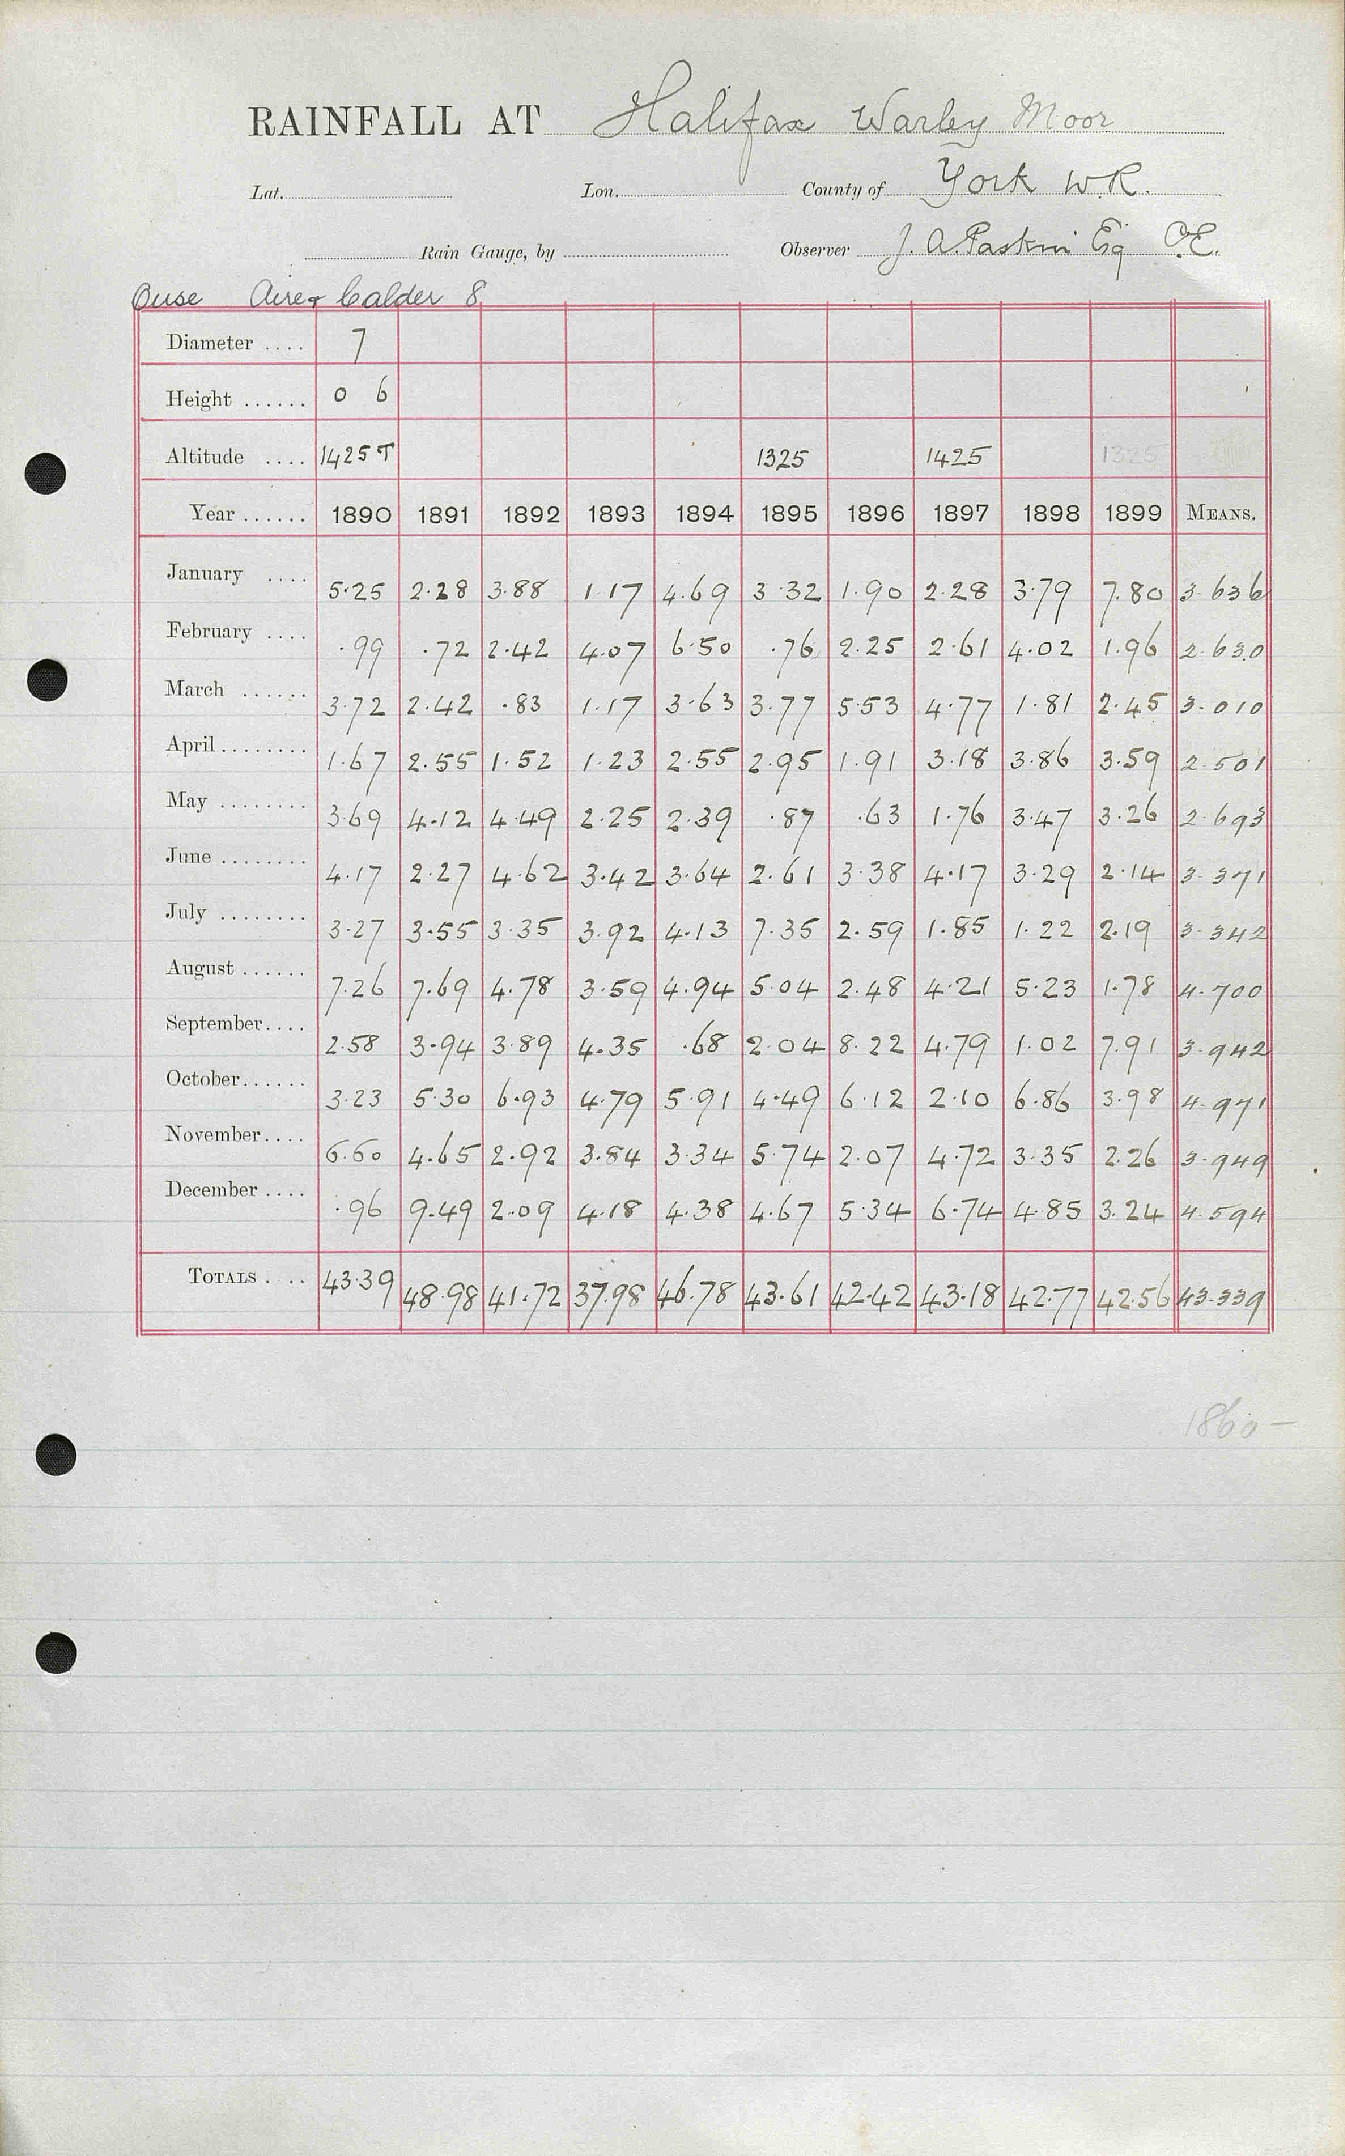 RAINFALL AT Halifax Warley Moor
Lat. Lon. County of York W.R.
Rain Gauge, by Observer J. A. Paskin Esq C.E.
Ouse Aire & Calder 8
Diameter .... 7
Height ...... 0 6
Altitude .... 1425 T 1325 1425 1325
Year ...... 1890 1891 1892 1893 1894 1895 1896 1897 1898 1899 MEANS.
January .... 5.25 2.28 3.88 1.17 4.69 3.32 1.90 2.28 3.79 7.80 3.636
February .... .99 .72 2.42 4.07 6.50 .76 2.25 2.61 4.02 1.96 2.630
March ...... 3.72 2.42 .83 1.17 3.63 3.77 5.53 4.77 1.81 2.45 3.010
April ........ 1.67 2.55 1.52 1.23 2.55 2.95 1.91 3.18 3.86 3.59 2.501
May ........ 3.69 4.12 4.49 2.25 2.39 .87 .63 1.76 3.47 3.26 2.693
June ........ 4.17 2.27 4.62 3.42 3.64 2.61 3.38 4.17 3.29 2.14 3.371
July ........ 3.27 3.55 3.35 3.92 4.13 7.35 2.59 1.85 1.22 2.19 3.342
August ...... 7.26 7.69 4.78 3.59 4.94 5.04 2.48 4.21 5.23 1.78 4.700
September .... 2.58 3.94 3.89 4.35 .68 2.04 8.22 4.79 1.02 7.91 3.942
October ...... 3.23 5.30 6.93 4.79 5.91 4.49 6.12 2.10 6.86 3.98 4.971
November .... 6.60 4.65 2.92 3.84 3.34 5.74 2.07 4.72 3.35 2.26 3.949
December .... .96 9.49 2.09 4.18 4.38 4.67 5.34 6.74 4.85 3.24 4.594
TOTALS .... 43.39 48.98 41.72 37.98 46.78 43.61 42.42 43.18 42.77 42.56 43.339
1860 -